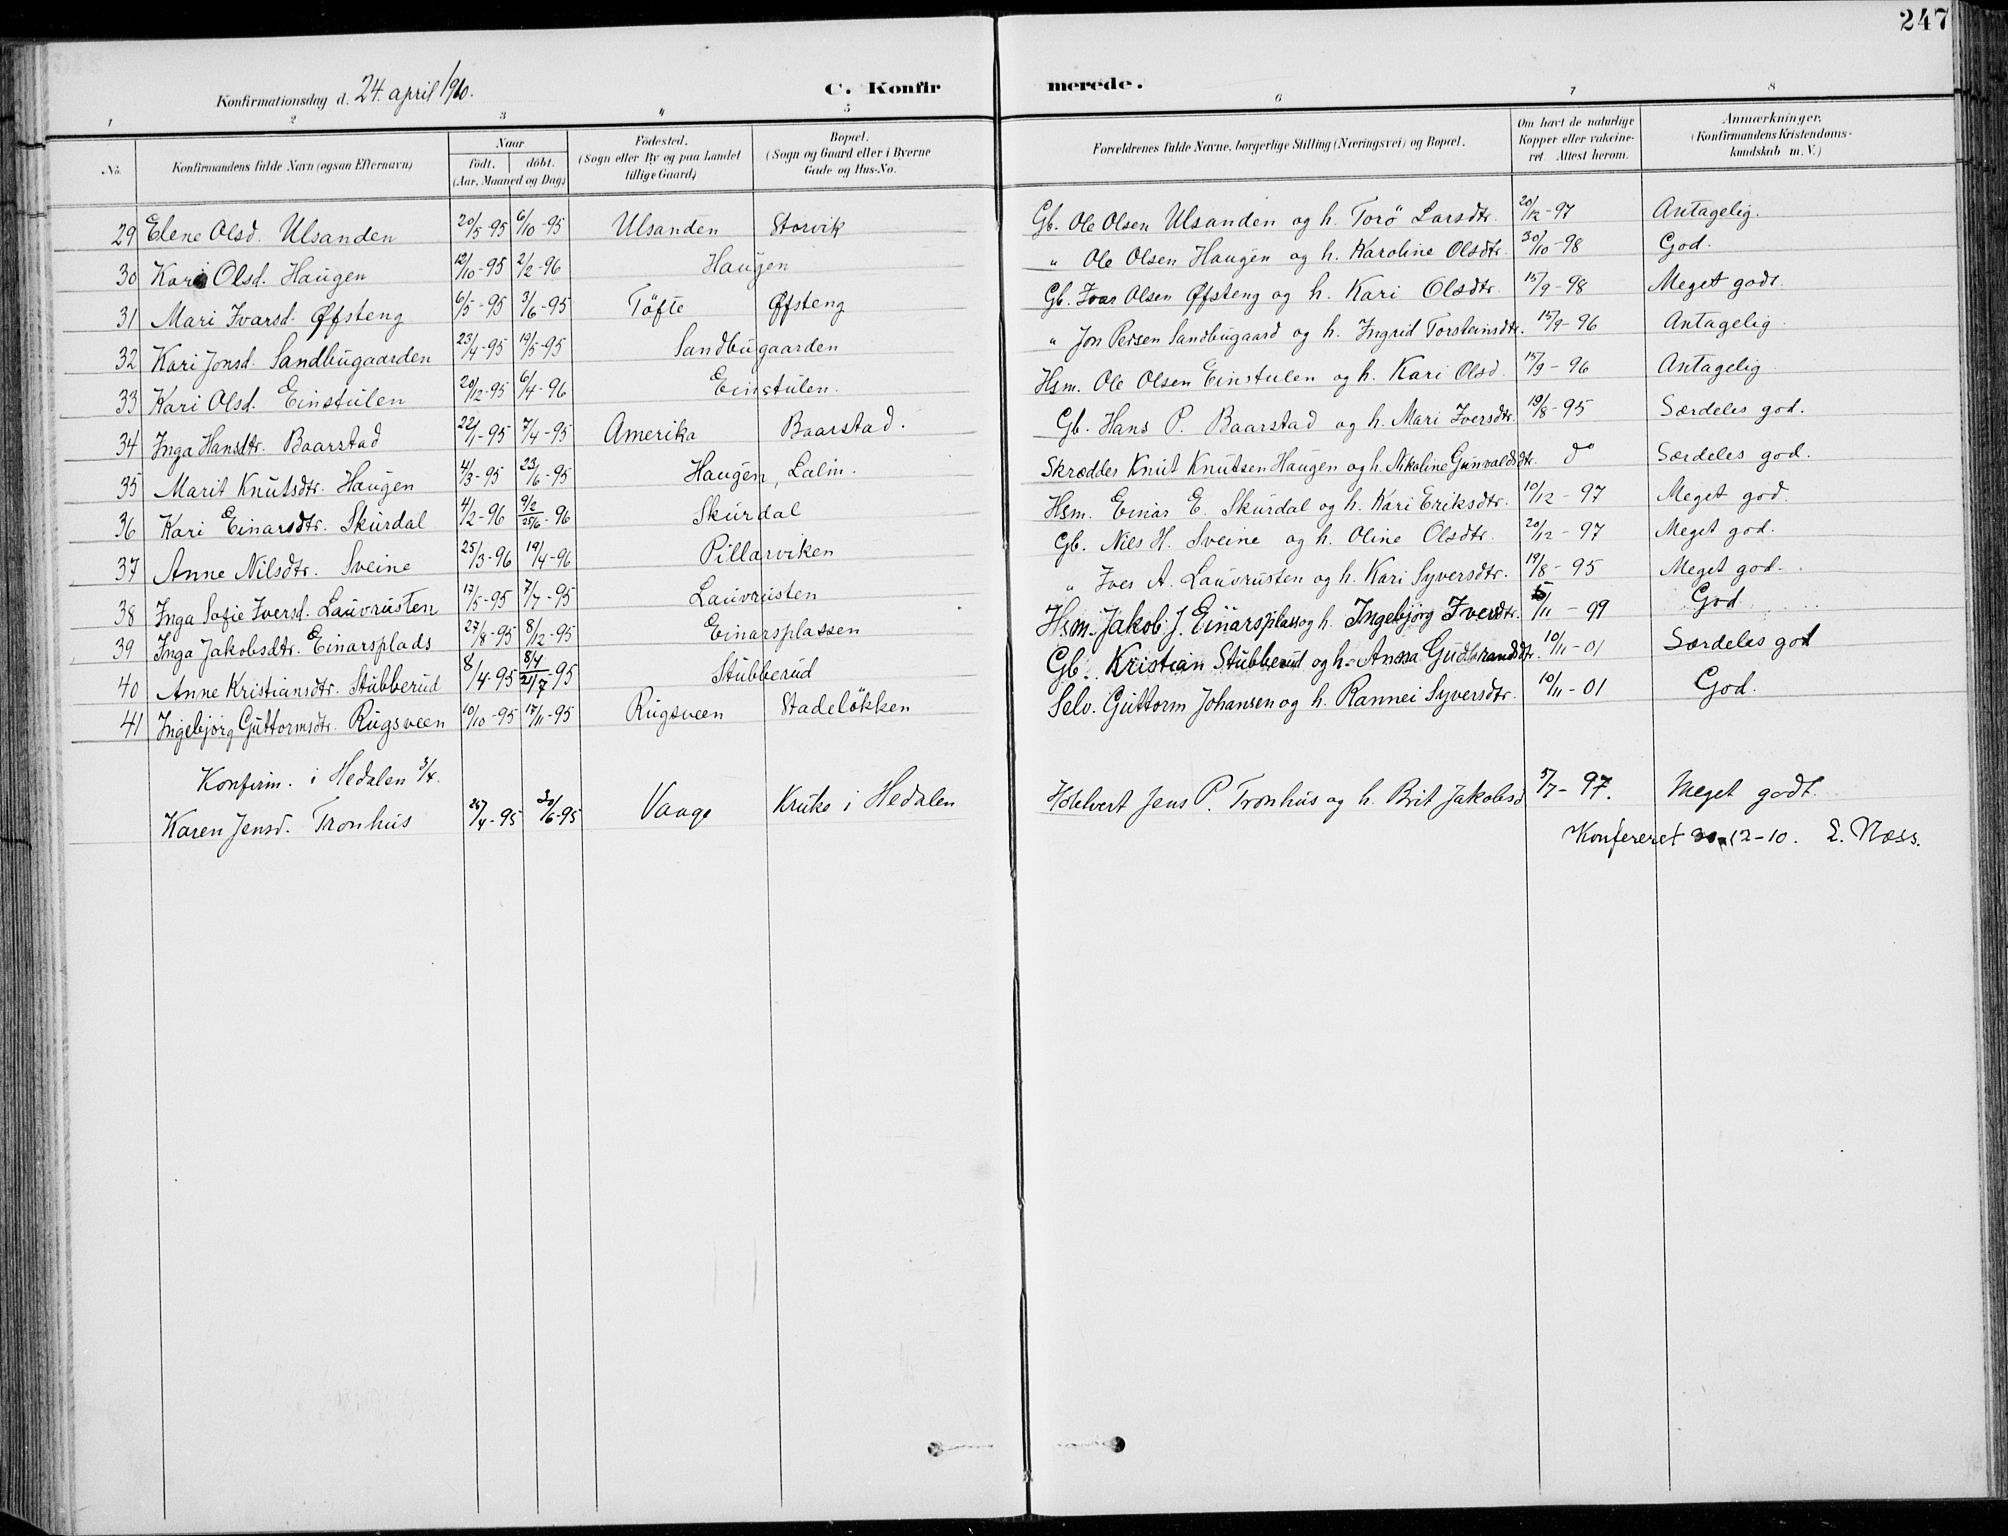 247
Konfirmationsdag d. 24. april 1910.
C. Konfirmerede.
1 2 3 4 5 6 7 8
No.
Konfirmandens fulde Navn (ogsaa Efternavn)
Naar
födt. döbt.
(Aar, Maaned og Dag)
Födested.
(Sogn eller By og paa Landet
tillige Gaard)
Bopæl.
(Sogn og Gaard eller i Byerne
Gade og Hus-No.
Forældrenes fulde Navne, borgerlige Stilling (Næringsvei) og Bopæl.
Om havt de naturlige
Kopper eller vakcine-
ret Attest herom.
Anmærkninger.
(Konfirmandens Kristendoms-
kundskab m. V.)
29 Elene Olsd. Ulsanden 20/5-95 6/10-95 Ulsanden Storvik Gb. Ole Olsen Ulsanden og h. Torö Larsdtr. 20/12-97 Antagelig.
30 Kari Olsd. Haugen 12/10-95 2/2-96 Haugen " Ole Olsen Haugen og h. Karoline Olsdtr. 30/10-98 God.
31 Mari Ivarsd. Øfsteng 6/5-95 3/6-95 Töfte Øfsteng Gb. Ivar Olsen Øfsteng og h. Kari Olsdtr. 15/9-98 Meget godt.
32 Kari Jonsd. Sandbugaarden 23/4-95 19/5-95 Sandbugaarden " Jon Persen Sandbugaard og h. Ingrid Torsteinsdtr. 15/9-96 Antagelig.
33 Kari Olsd. Einstulen 20/12-95 6/4-96 Einstulen. Hsm. Ole Olsen Einstulen og h. Kari Olsd. 15/9-96 Antagelig
34 Inga Hansdtr. Baarstad 22/1-95 7/4-95 Amerika Baarstad. Gb. Hans P. Baarstad og h. Mari Iversdtr. 19/8-95 Særdeles god.
35 Marit Knutsdtr. Haugen 4/3-95 23/6-95 Haugen, Lalm. Skrædder Knut Knutsen Haugen og h. Nikoline Gunvaldsdtr. do Særdeles god.
36 Kari Einarsdtr. Skurdal 4/2-96 9/2 25/6-96 Skurdal Hsm. Einar E. Skurdal og h. Kari Eriksdtr. 10/12-97 Meget god.
37 Anne Nilsdtr. Sveine 25/3-96 19/4-96 Pillarviken Gb. Nils H. Sveine og h. Oline Olsdtr. 20/12-97 Meget god.
38 Inga Sofie Iversd. Lauvrusten 17/5-95 7/7-95 Lauvrusten " Iver A. Lauvrusten og h. Kari Syversdtr. 19/8-95 Meget god.
39 Inga Jakobsdtr. Einarsplads 27/8-95 8/12-95 Einarsplassen Hsm. Jakob J. Einarsplass og h. Ingebjörg Iversdtr. 5/11-99 God
40 Anne Kristiansdtr. Stubberud 8/4-95 8/4 21/7-95 Stubberud Gb. Kristian Stubberud og h. Anna Gudbrandsdtr. 10/11-01 Særdeles god
41 Ingebjörg Guttormsdtr. Rugsveen 10/10-95 17/11-95 Rugsveen Stadelökken Selv. Guttorm Johansen og h. Rannei Syversdtr. 10/11-01 God.
Konfirm. i Hedalen 3/4.
Karen Jensd. Tronhus 25/4-95 30/6-95 Vaage Kruke i Hedalen Jens P. Tronhus og h. Brit Jakobsd 5/7-97. Meget godt.
Konfereret 12-10. E. Næss.